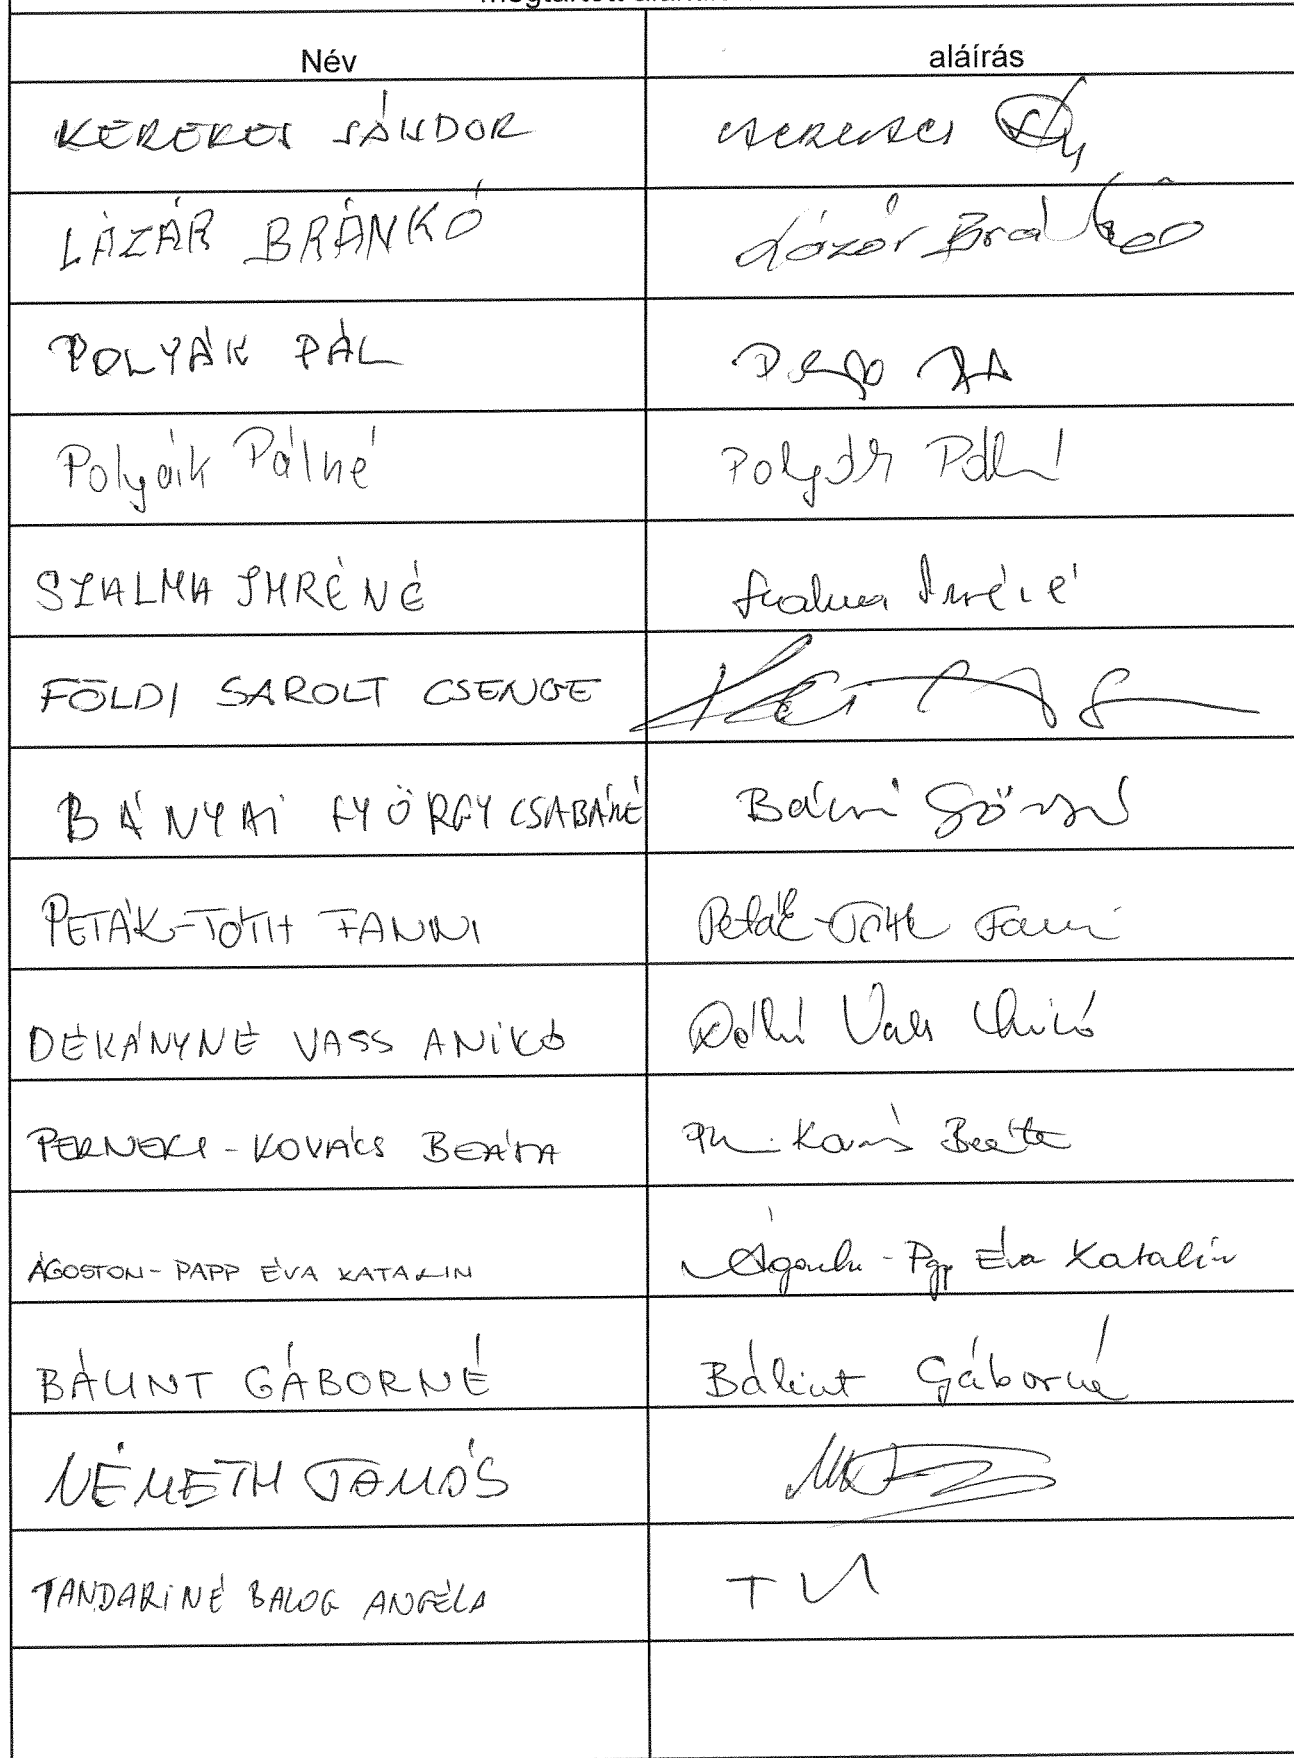 Név aláírás
KEREKES SÁNDOR
LÁZÁR BRÁNKÓ Lázár
POLYÁK PÁL
Polyák Pálné Polyák Pálné
SZALMA IMRÉNÉ Szalma Imréné
FÖLDI SAROLT CSENGE
BÁNYAI GYÖRGY CSABÁNÉ
PETÁK-TÓTH FANNI Peták-Tóth Fanni
DÉKÁNYNÉ VASS ANIKÓ Vass Anikó
PERNEKI-KOVÁCS BEÁTA Kovács Beáta
ÁGOSTON-PAPP ÉVA KATALIN Ágoston-Papp Éva Katalin
BÁLINT GÁBORNÉ Bálint Gáborné
NÉMETH TAMÁS
TANDARINÉ BALOG ANGÉLA